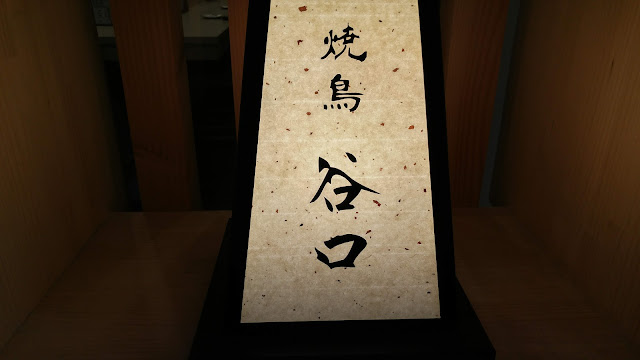 焼鳥 谷口